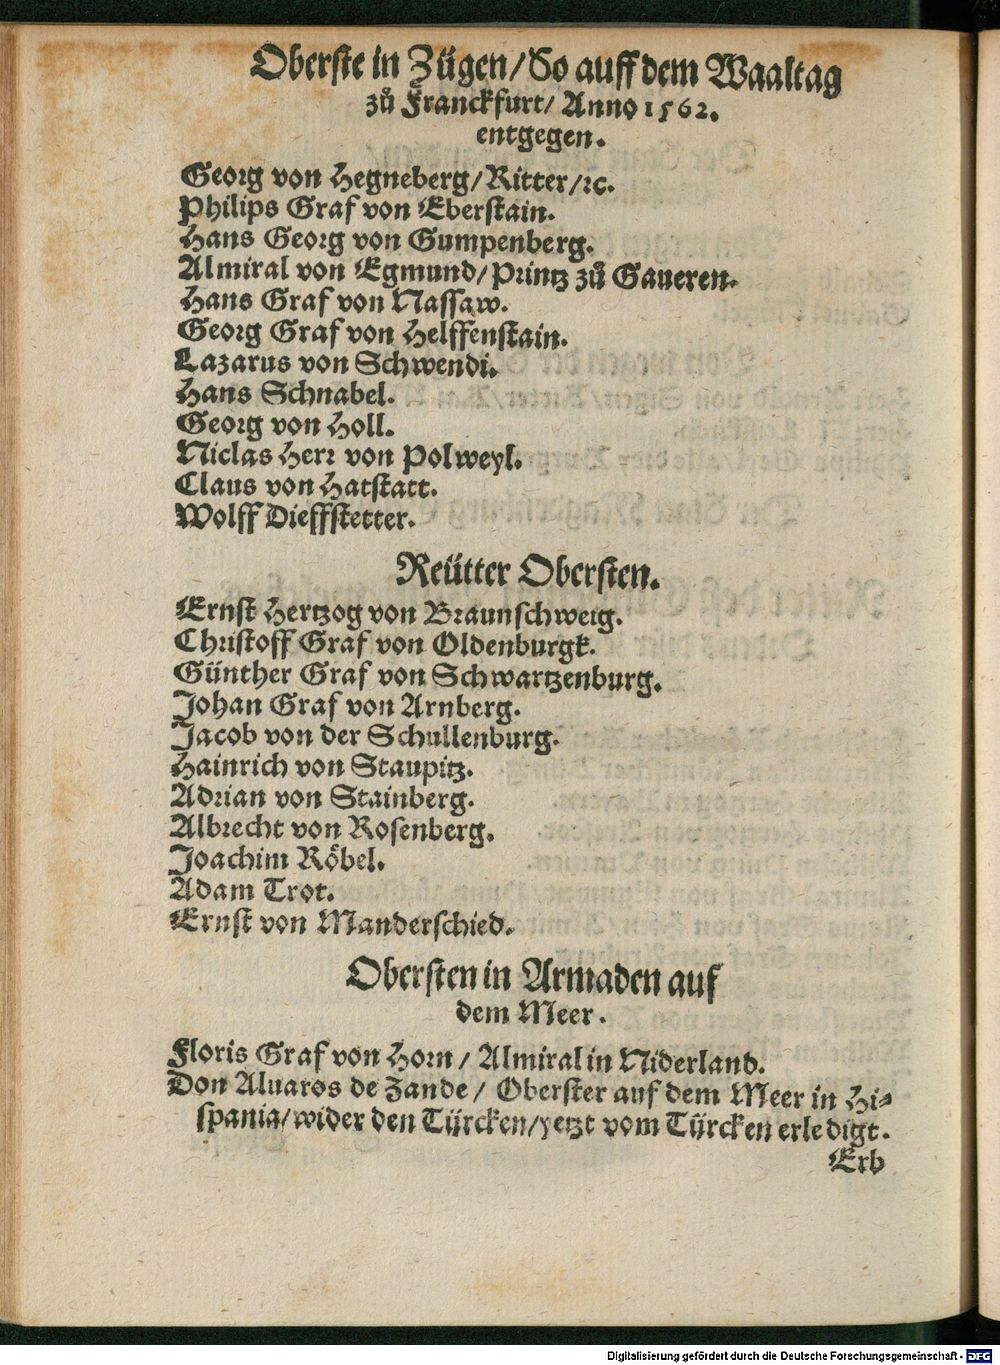 Oberste in Zügen/ So auff dem Waaltag
zů Franckfurt/ Anno 1562.
entgegen.
Georg von Hegneberg/ Ritter/ ꝛc.
Philips Graf von Eberstain.
Hans Georg von Gumpenberg.
Almiral von Egmund/ Printz zů Gaueren.
Hans Graf von Nassaw.
Georg Graf von Helffenstain.
Lazarus von Schwendi.
Hans Schnabel.
Georg von Holl.
Niclas Herr von Polweyl.
Claus von Hatstatt.
Wolff Dieffstetter.
Reütter Obersten.
Ernst Hertzog von Braunschweig.
Christoff Graf von Oldenburgk.
Günther Graf von Schwartzenburg.
Johan Graf von Arnberg.
Jacob von der Schullenburg.
Hainrich von Staupitz.
Adrian von Stainberg.
Albrecht von Rosenberg.
Joachim Röbel.
Adam Trot.
Ernst von Manderschied.
Obersten in Armaden auf
dem Meer.
Floris Graf von Horn / Almiral in Niderland.
Don Aluaros de Zande / Oberster auf dem Meer in Hi-
spania/ wider den Türcken/ yetzt vom Türcken erledigt.
Erb
Digitalisierung gefördert durch die Deutsche Forschungsgemeinschaft - DFG